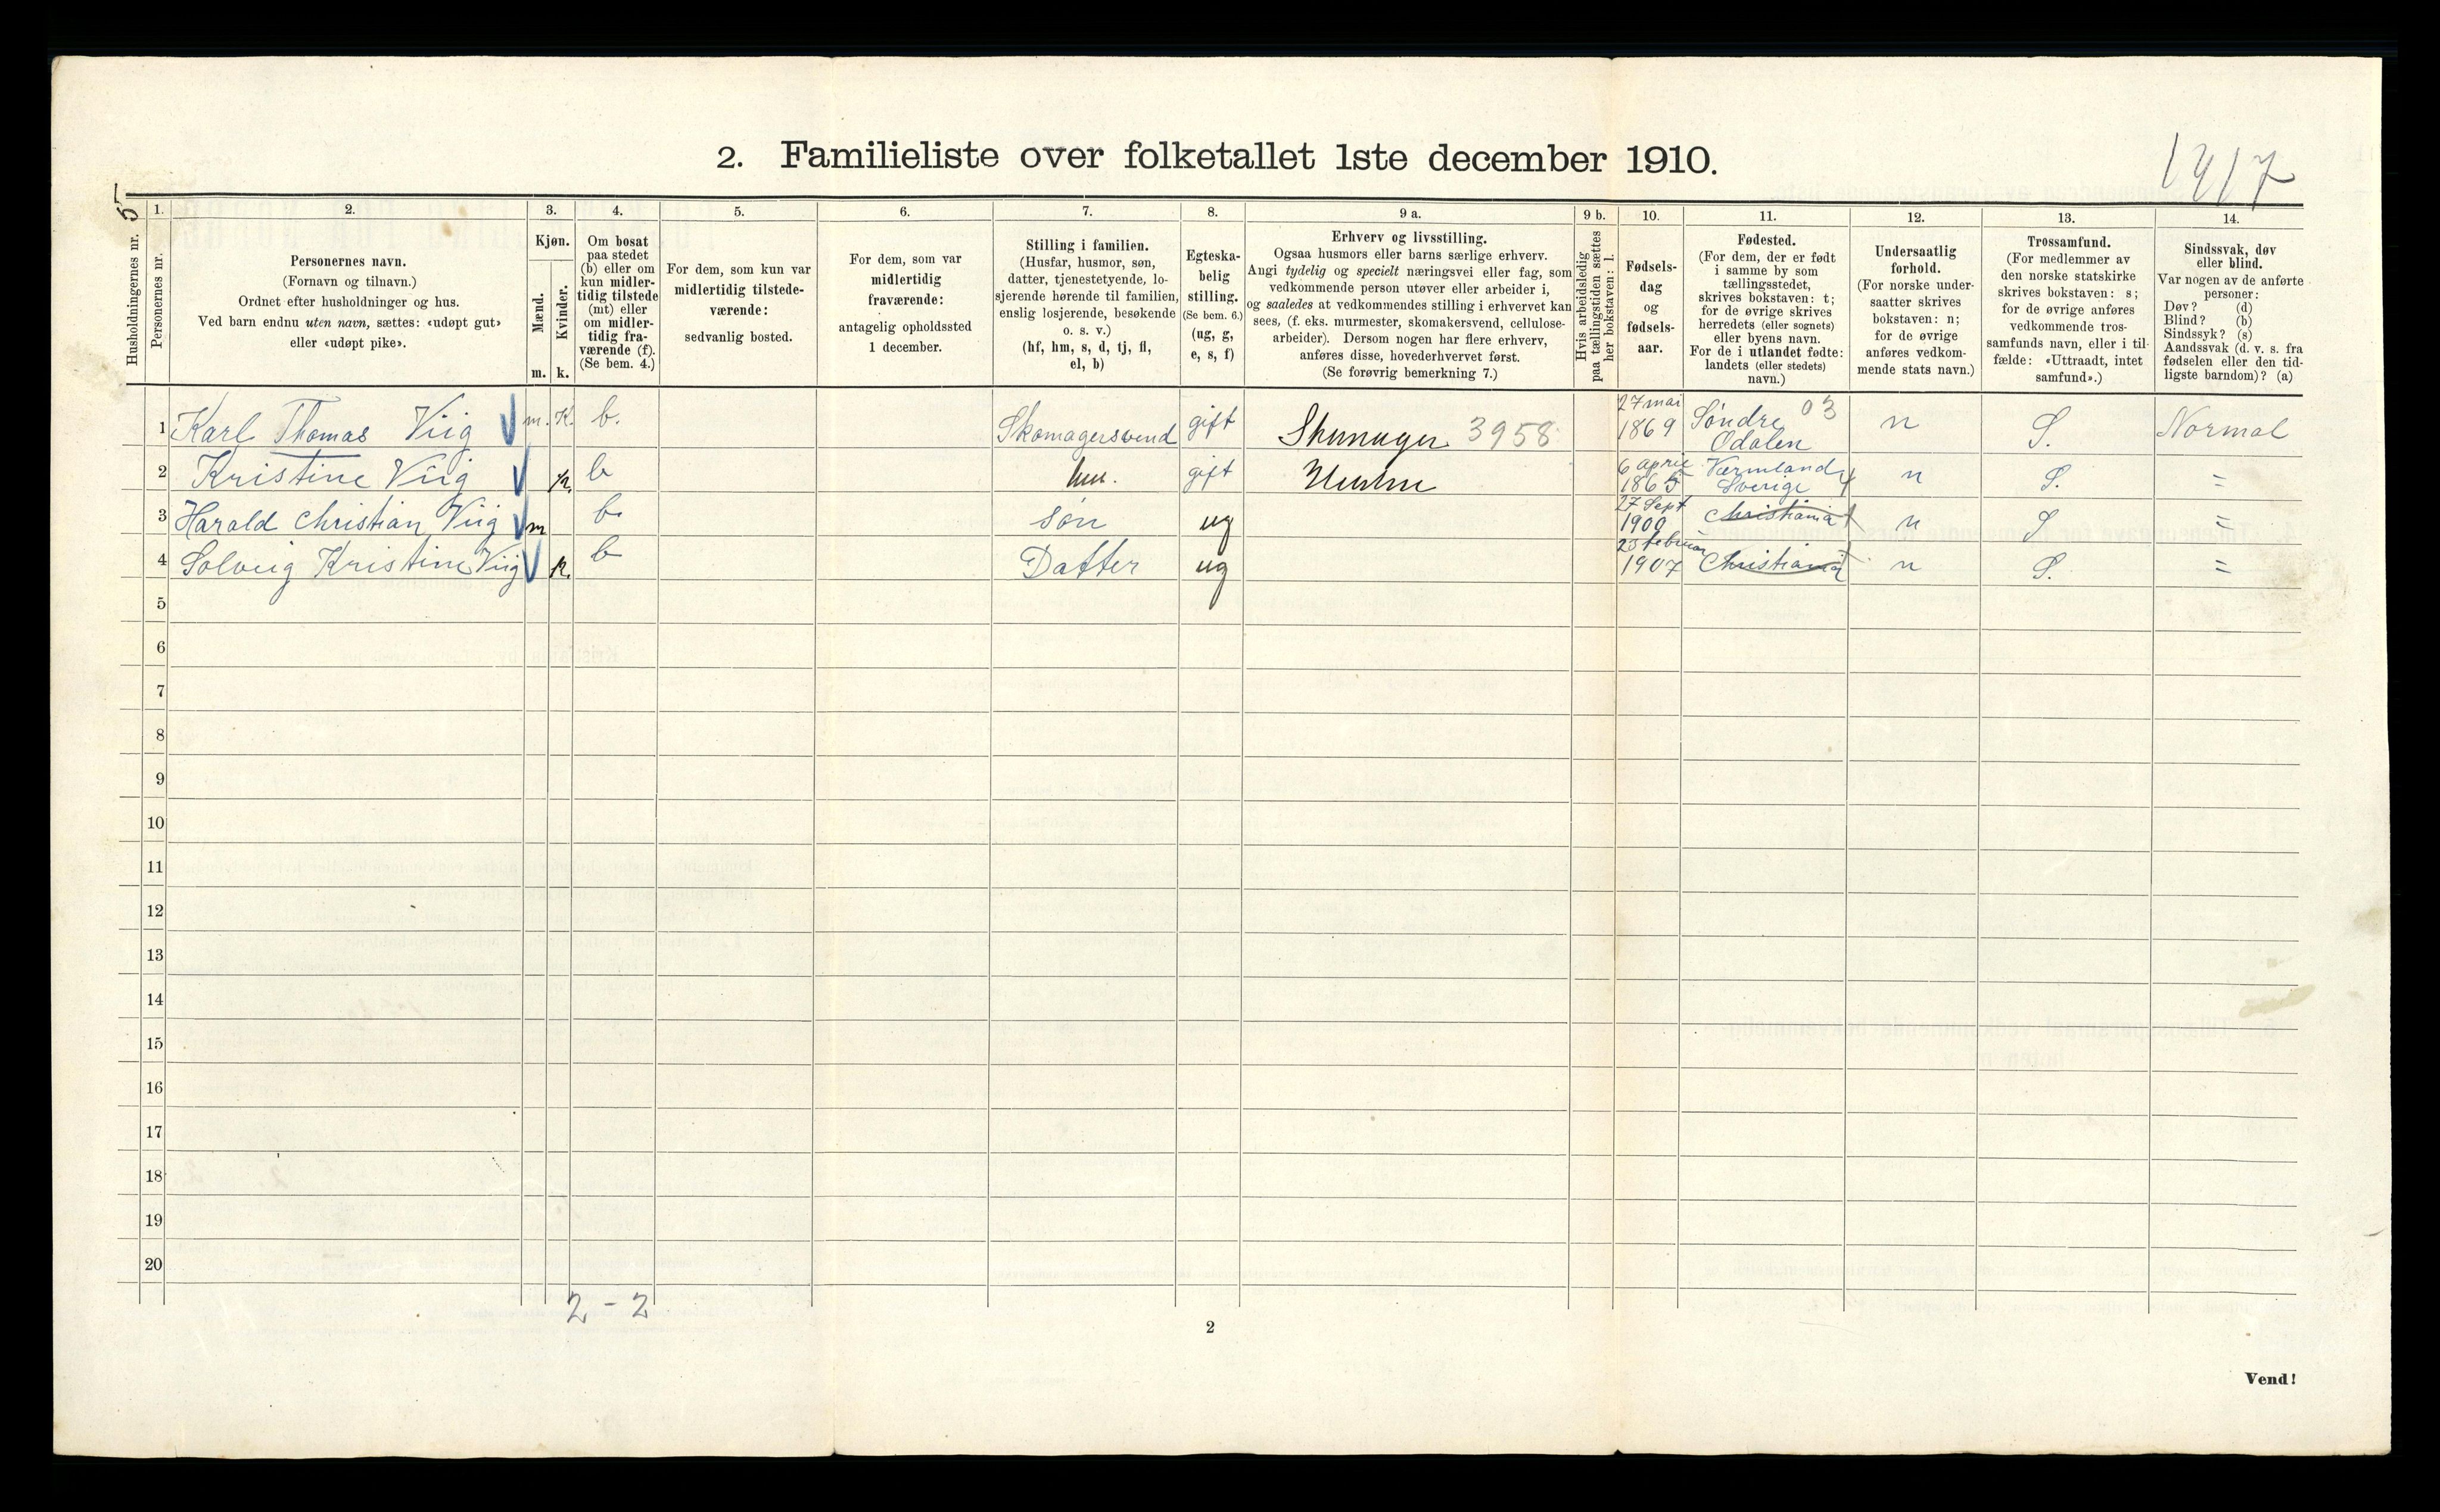 2. Familieliste over folketallet 1ste december 1910.
1417
5
Husholdningernes nr.
1.
Personernes nr.
2.
Personernes navn.
(Fornavn og tilnavn.)
Ordnet efter husholdninger og hus.
Ved barn endnu uten navn, sættes: «udøpt gut»
eller «udøpt pike».
3.
Kjøn.
Mænd.
Kvinder.
m. k.
4.
Om bosat
paa stedet
(b) eller om
kun midler-
tidig tilstede
(mt) eller
om midler-
tidig fra-
værende (f).
(Se bem. 4.)
5.
For dem, som kun var
midlertidig tilstede-
værende:
sedvanlig bosted.
6.
For dem, som var
midlertidig
fraværende:
antagelig opholdssted
1 december.
7.
Stilling i familien.
(Husfar, husmor, søn,
datter, tjenestetyende, lo-
sjerende hørende til familien,
enslig losjerende, besøkende
o. s. v.)
(hf, hm, s, d, tj, fl,
el, b)
8.
Egteska-
belig
stilling.
(Se bem. 6.)
(ug, g,
e, s, f)
9 a.
Erhverv og livsstilling.
Ogsaa husmors eller barns særlige erhverv.
Angi tydelig og specielt næringsvei eller fag, som
vedkommende person utøver eller arbeider i,
og saaledes at vedkommendes stilling i erhvervet kan
sees, (f. eks. murmester, skomakersvend, cellulose-
arbeider). Dersom nogen har flere erhverv,
anføres disse, hovederhvervet først.
(Se forøvrig bemerkning 7.)
9 b.
Hvis arbeidsledig
paa tællingstiden sættes
her bokstaven: l.
10.
Fødsels-
dag
og
fødsels-
aar.
11.
Fødested.
(For dem, der er født
i samme by som
tællingsstedet,
skrives bokstaven: t;
for de øvrige skrives
herredets (eller sognets)
eller byens navn.
For de i utlandet fødte:
landets (eller stedets)
navn.)
12.
Undersaatlig
forhold.
(For norske under-
saatter skrives
bokstaven: n;
for de øvrige
anføres vedkom-
mende stats navn.)
13.
Trossamfund.
(For medlemmer av
den norske statskirke
skrives bokstaven: s;
for de øvrige anføres
vedkommende tros-
samfunds navn, eller i til-
fælde: «Uttraadt, intet
samfund».)
14.
Sindssvak, døv
eller blind.
Var nogen av de anførte
personer:
Døv? (d)
Blind? (b)
Sindssyk? (s)
Aandssvak (d. v. s. fra
fødselen eller den tid-
ligste barndom)? (a)
1 Karl Thomas Viig m. K. b. Skomagersvend gift Skumager 3958 27 mai 1869 Søndre Odalen 03 n S. Normal
2 Kristine Viig k. b hm. gift Hustru 6 april 1865 Vermland Sverige n S. =
3 Harald Christian Viig m b. Søn ug 27 Sept 1900 Christiania t n S =
4 Solveig Kristine Viig k. b Datter ug 23 februar 1907 Christiania t n S. =
5
6
7
8
9
10
11
12
13
14
15
16
17
18
19
20
2 - 2
2
Vend!